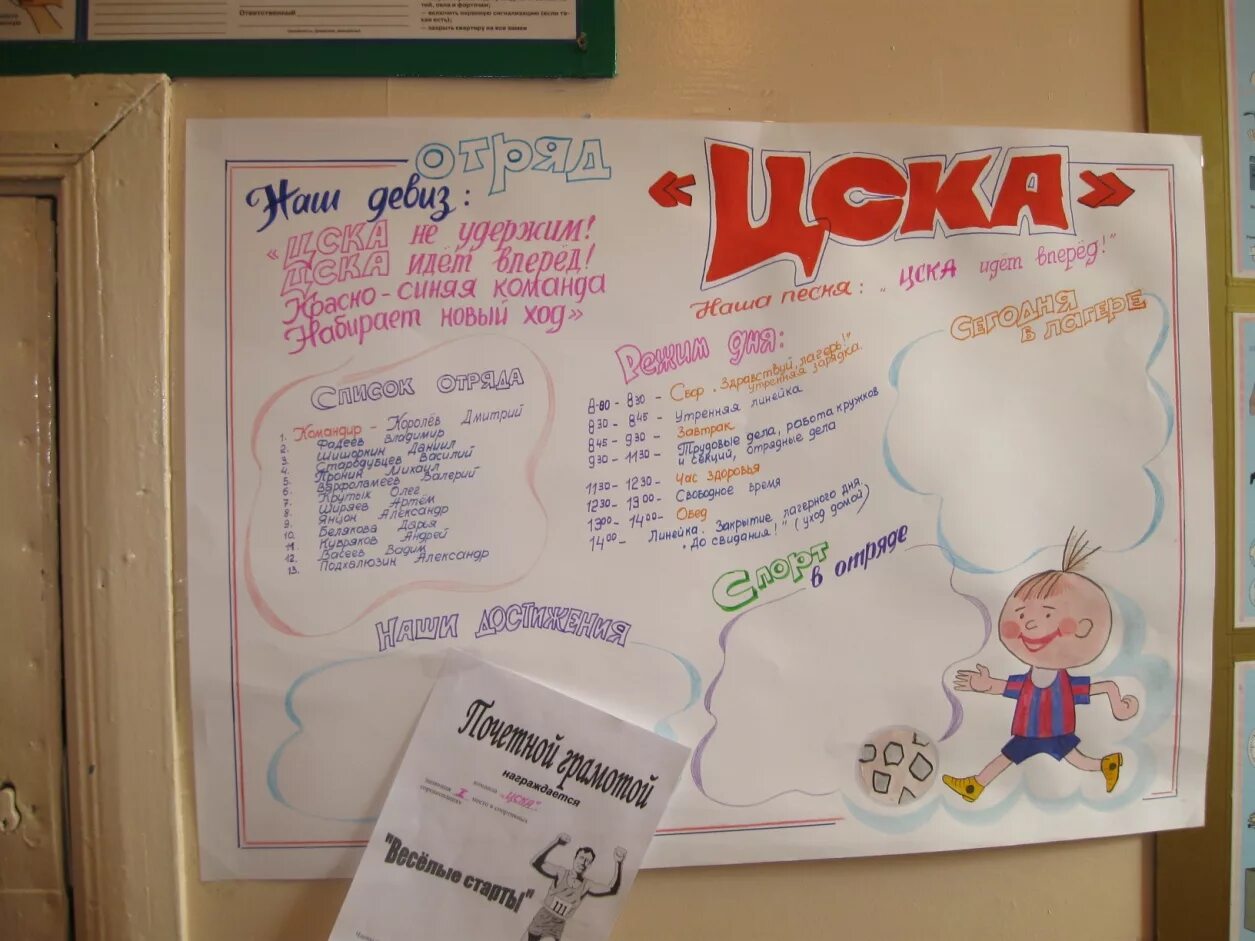 Ответственный
тей, окна и форточки;
— включить охранную сигнализацию (если та-
кая есть);
— закрыть квартиру на все замки
отряд
« ЦСКА »
Наш девиз:
«ЦСКА не удержим!
ЦСКА идёт вперёд!
Красно-синяя команда
Набирает новый ход»
Наша песня: „ЦСКА идёт вперёд!"
Список отряда
1. Командир - Королёв Дмитрий
2. Фадеев Владимир
3. Шишоркин Даниил
4. Стародубцев Василий
5. Пронин Михаил
6. Варфоламеев Валерий
7. Крутых Олег
8. Ширяев Артём
9. Янцон Александр
10. Белякова Дарья
11. Кудряков Андрей
12. Васеев Вадим
13. Подхалюзин Александр
Режим дня:
8-00 - 8 30 - Сбор. „Здравствуй, лагерь!"
утренняя зарядка.
8 30 - 8 45 - Утренняя линейка
8 45 - 9 30 - Завтрак
9 30 - 11 30 - Трудовые дела, работа кружков
и секций, отрядные дела
11 30 - 12 30 - Час здоровья
12 30 - 13 00 - Свободное время
13 00 - 14 00 - Обед
14 00 - Линейка. Закрытие лагерного дня.
„До свидания!" (уход домой)
Сегодня
в лагере
Спорт
в отряде
Наши достижения
Почетной грамотой
награждается
команда „ЦСКА"
занявшая I место в спортивных
соревнованиях
"Весёлые старты"
111